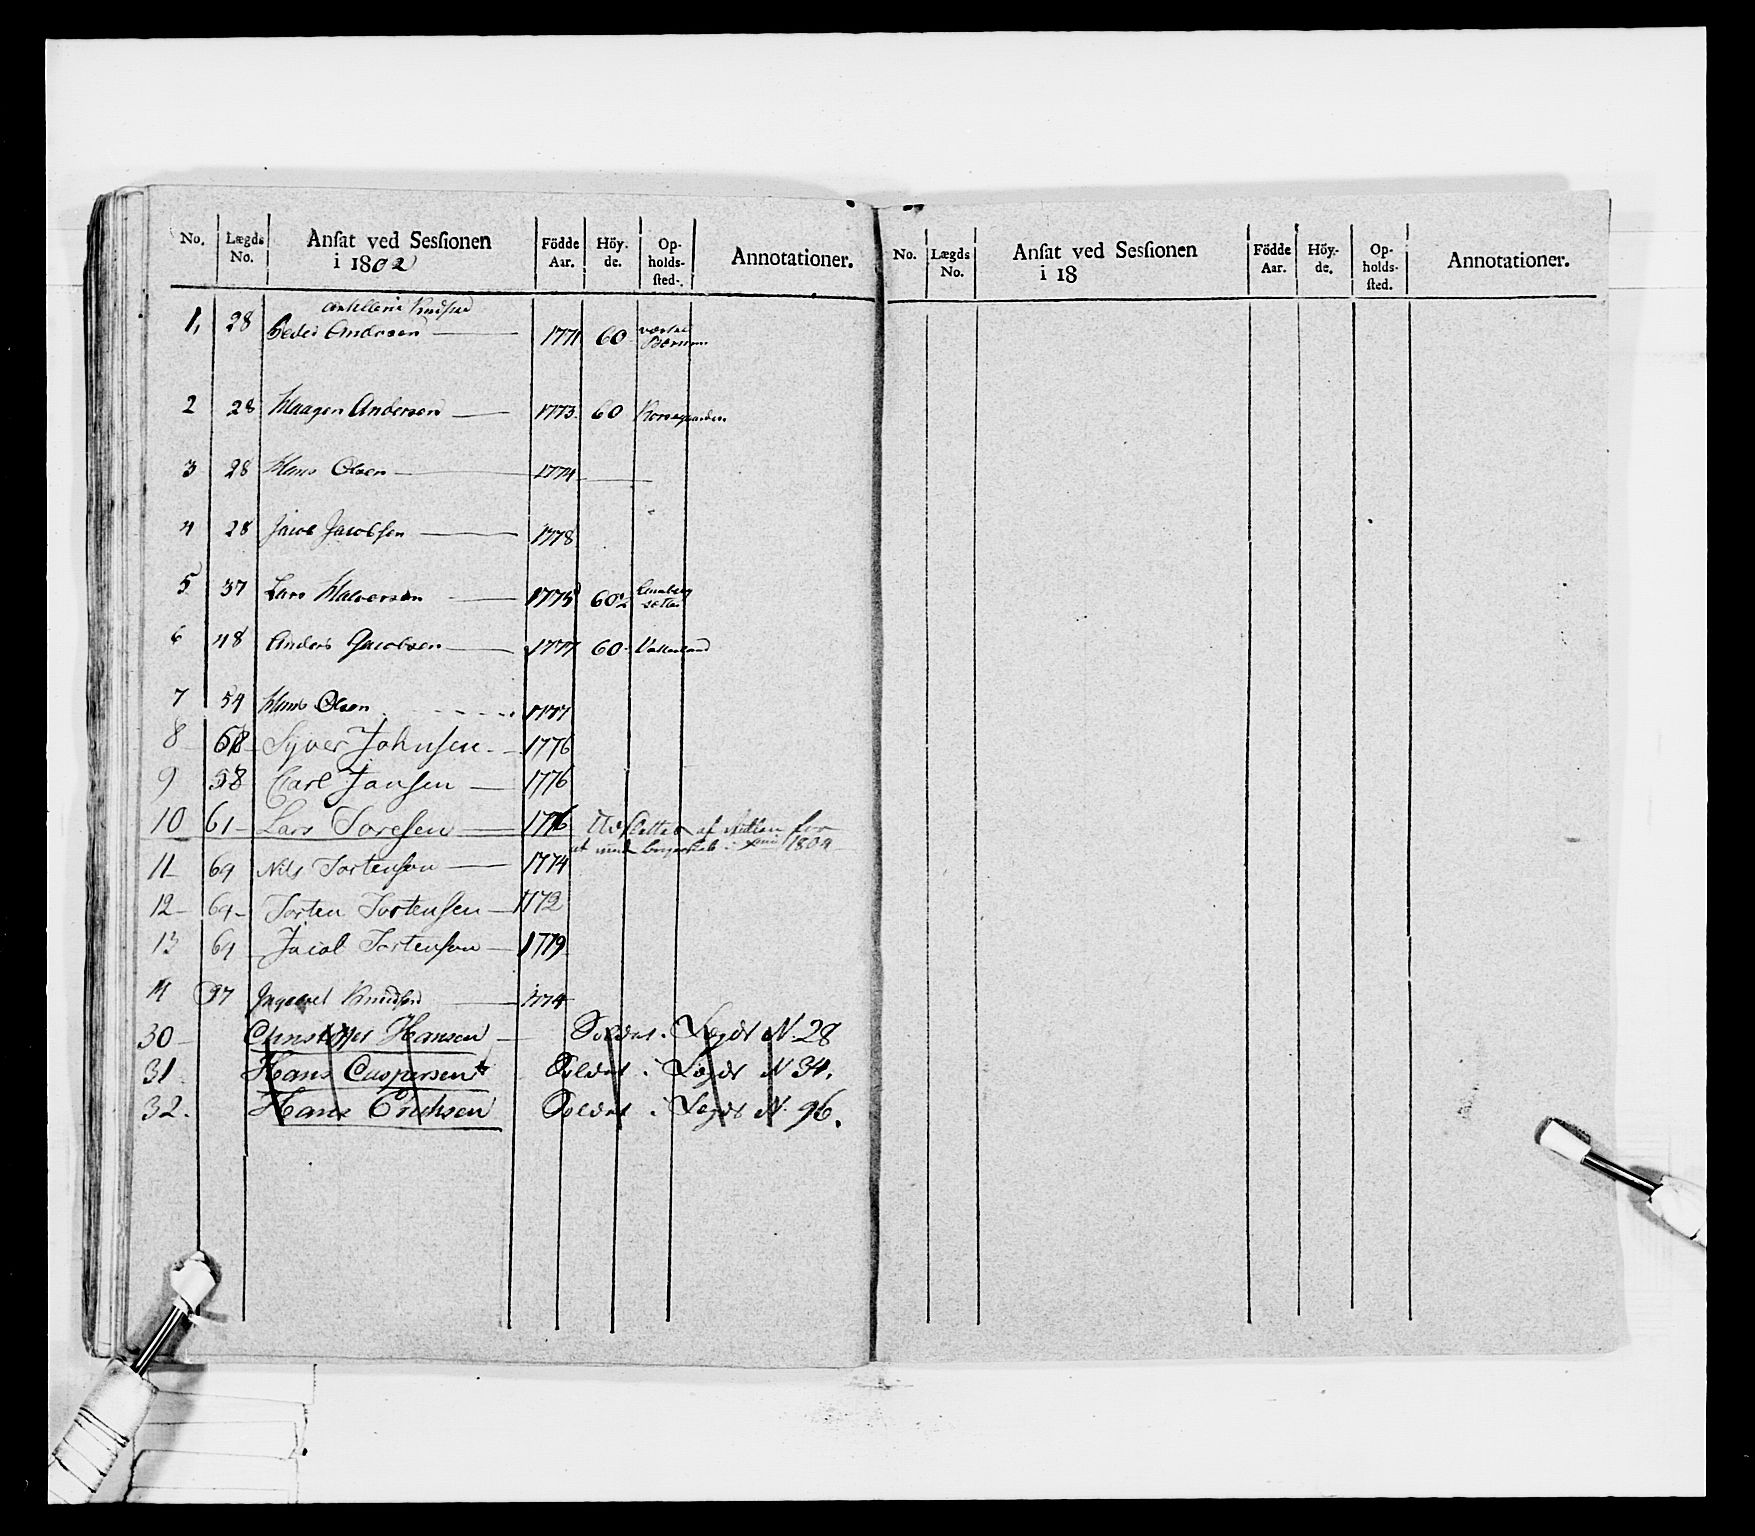 No. Lægds No. Ansat ved Sessionen i 1802 Födde Aar. Höy-de. Op-holds-sted. Annotationer.
1, 28 Peder Andersen 1771 60
2 28 Haagen Andersen 1773 60
3 28 Hans Olsen 1774
4 28 Jacob Jacobsen 1778
5 37 Lars Halvorsen 1775 60½
6 48 Anders Jacobsen 1777 60
7 54 Hans Olsen 1777
8 68 Syver Johnsen 1776
9 58 Carl Jansen 1776
10 61 Lars Toresen 1776 af for
1804
11 64 Nils Tortensen 1774
12 64 Torten Tortensen 1772
13 64 Jacob Tortensen 1779
14 97 Knudsen 1774
30 Christopher Hansen Soldat i Lægdt N. 28
31 Hans Caspersen Soldat i Lægdt N 34.
32. Hans Eriksen Soldat i Lægdt N. 96.
No. Lægds No. Ansat ved Sessionen i 18 Födde Aar. Höy-de. Op-holds-sted. Annotationer.